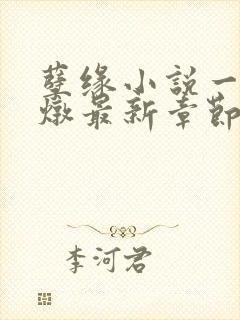 孽缘小说一
燉最新章節
李河君